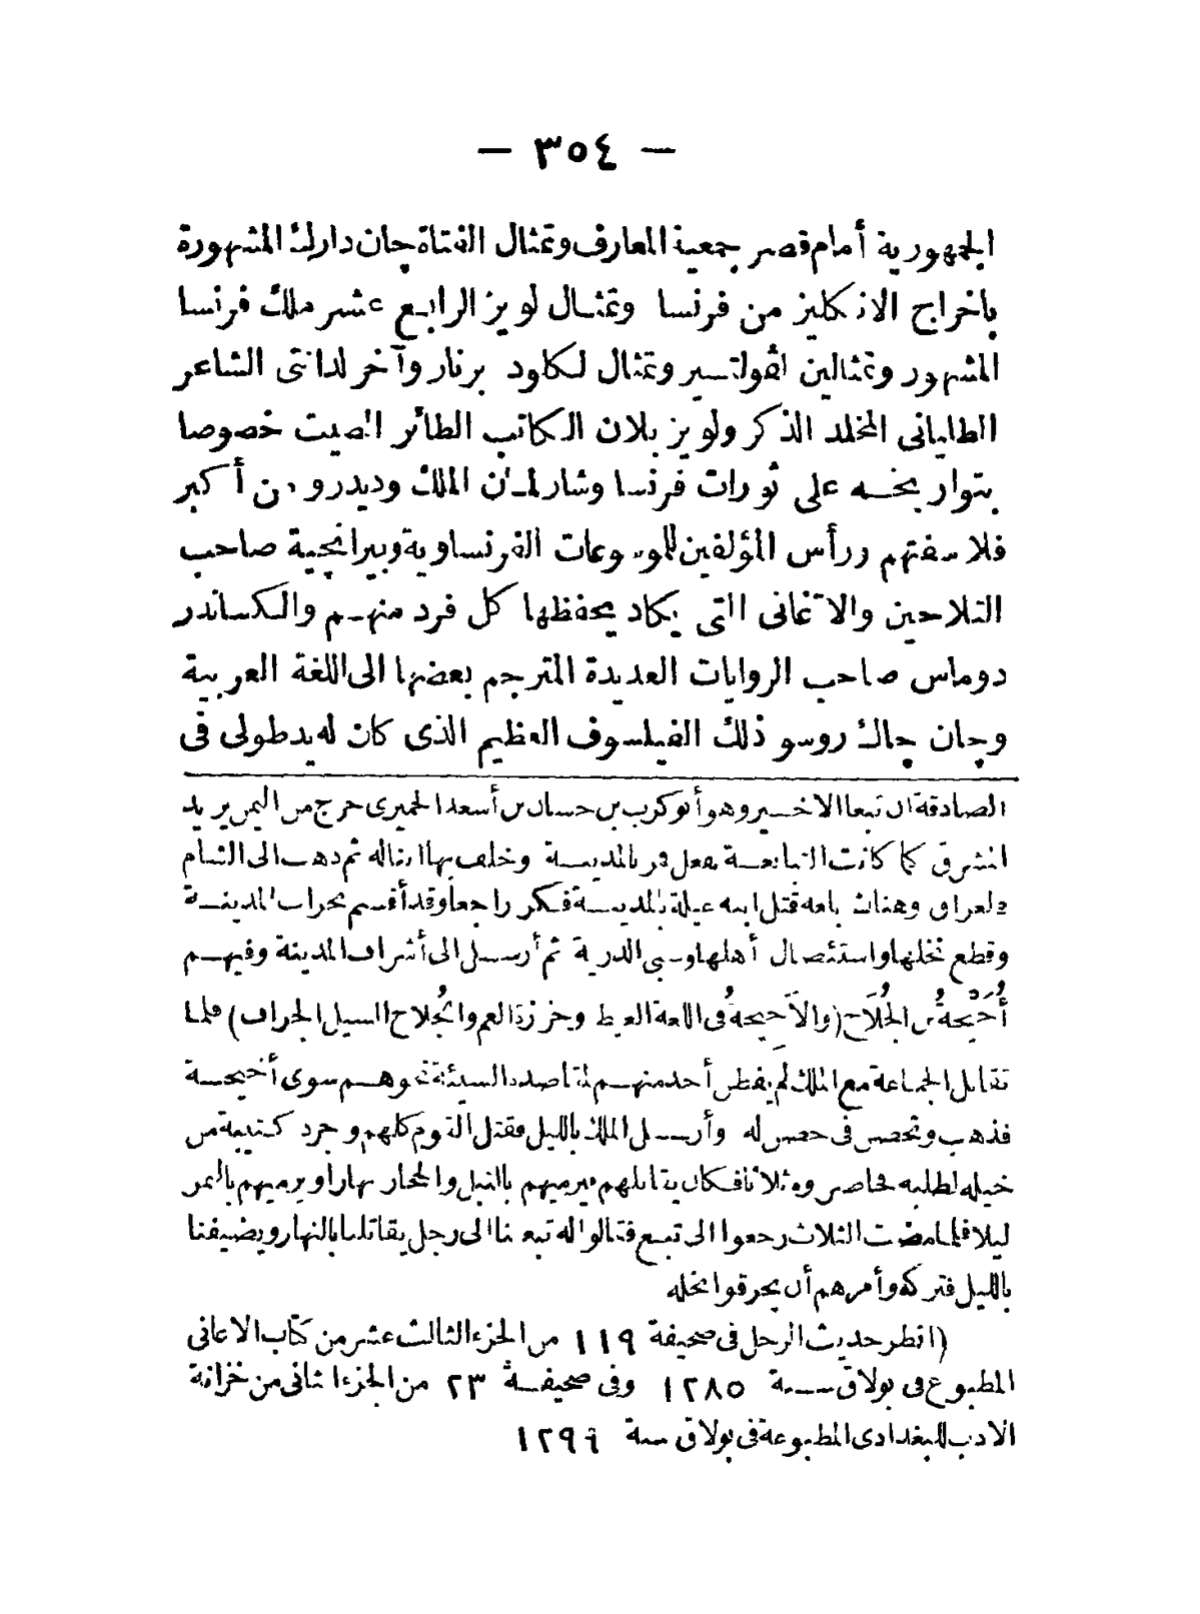 — ٣٥٤ —
الجمهورية أمام قصر جمعية المعارف وتمثال الفتاة چان دارك المشهورة
باخراج الانكليز من فرنسا وتمثال لويز الرابع عشر ملك فرنسا
المشهور وتمثالين لڤولتسير وتمثال لكلود برنار وآخر لدانتى الشاعر
الطليانى المخلد الذكر ولويز بلان الكاتب الطائر الصيت خصوصا
بتواريخسه على ثورات فرنسا وشارلمان الملك وديدرو من أكبر
فلاسفتهم ورأس المؤلفين للموسوعات الفرنساوية وبيرانجيه صاحب
التلاحين والاغانى التى يكاد يحفظها كل فرد منهم والكساندر
دوماس صاحب الروايات العديدة المترجم بعضها الى اللغة العربية
وچان چاك روسو ذلك الفيلسوف العظيم الذى كان له يد طولى فى
الصادقة ان تبعا الاخير وهو أبو كرب بن حسان بن أسعد الحميرى خرج من اليمن يريد
المشرق كما كانت التبابعة تفعل فمر بالمدينة وخلف بها ابنا له ثم ذهب الى الشام
والعراق وهناك بلغه قتل ابنه غيلة بالمدينة فكر راجعا وقد أقسم بخراب المدينة
وقطع نخلها واستئصال أهلها وسبى الذرية ثم أرسل الى أشراف المدينة وفيهم
أُحَيْحةُ بن الجُلَاح (والاُحَيحةُ فى اللغة الغيظ وحزازة الغم والجُلاح السيل الجراف) فلما
تقابل الجماعة مع الملك لم يفطن أحد منهم لمقاصده السيئة نحوهم سوى أحيحة
فذهب وتحصن فى حصن له وأرسل الملك بالليل فقتل القوم كلهم وجرد كتيبة من
خيله لطلبه فحاصروه ثلاثا فكان يقاتلهم فيرميهم بالنبل والحجار نهارا ويرميهم بالتمر
ليلا فلما مضت الثلاث رجعوا الى تبع فقالوا له تبعثنا الى رجل يقاتلنا بالنهار ويضيفنا
بالليل فتركه وأمرهم أن يحرقوا نخله
(انظر حديث الرجل فى صحيفة ١١٩ من الجزء الثالث عشر من كتاب الاغانى
المطبوع فى بولاق سنة ١٢٨٥ وفى صحيفة ٢٣ من الجزء الثانى من خزانة
الادب للبغدادى المطبوعة فى بولاق سنة ١٢٩٩